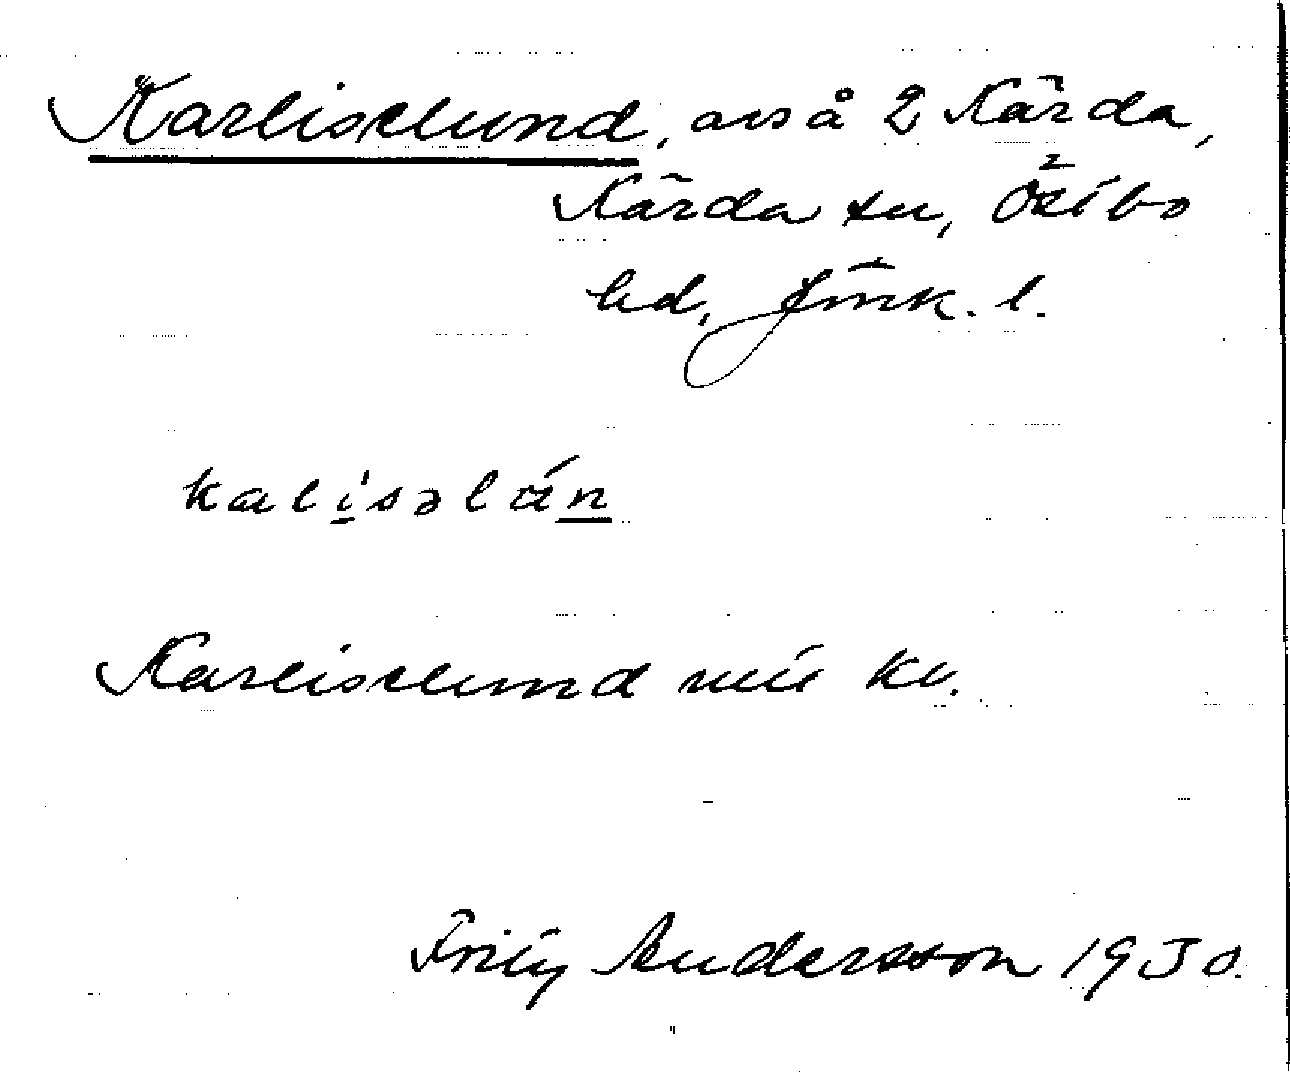 Karliselund, avs å 2 Kärda,
Kärda sn, Östbo
hd, Jönk. l.
kalisəlún
Karliselund mit kv.
Fritz Andersson 1930.